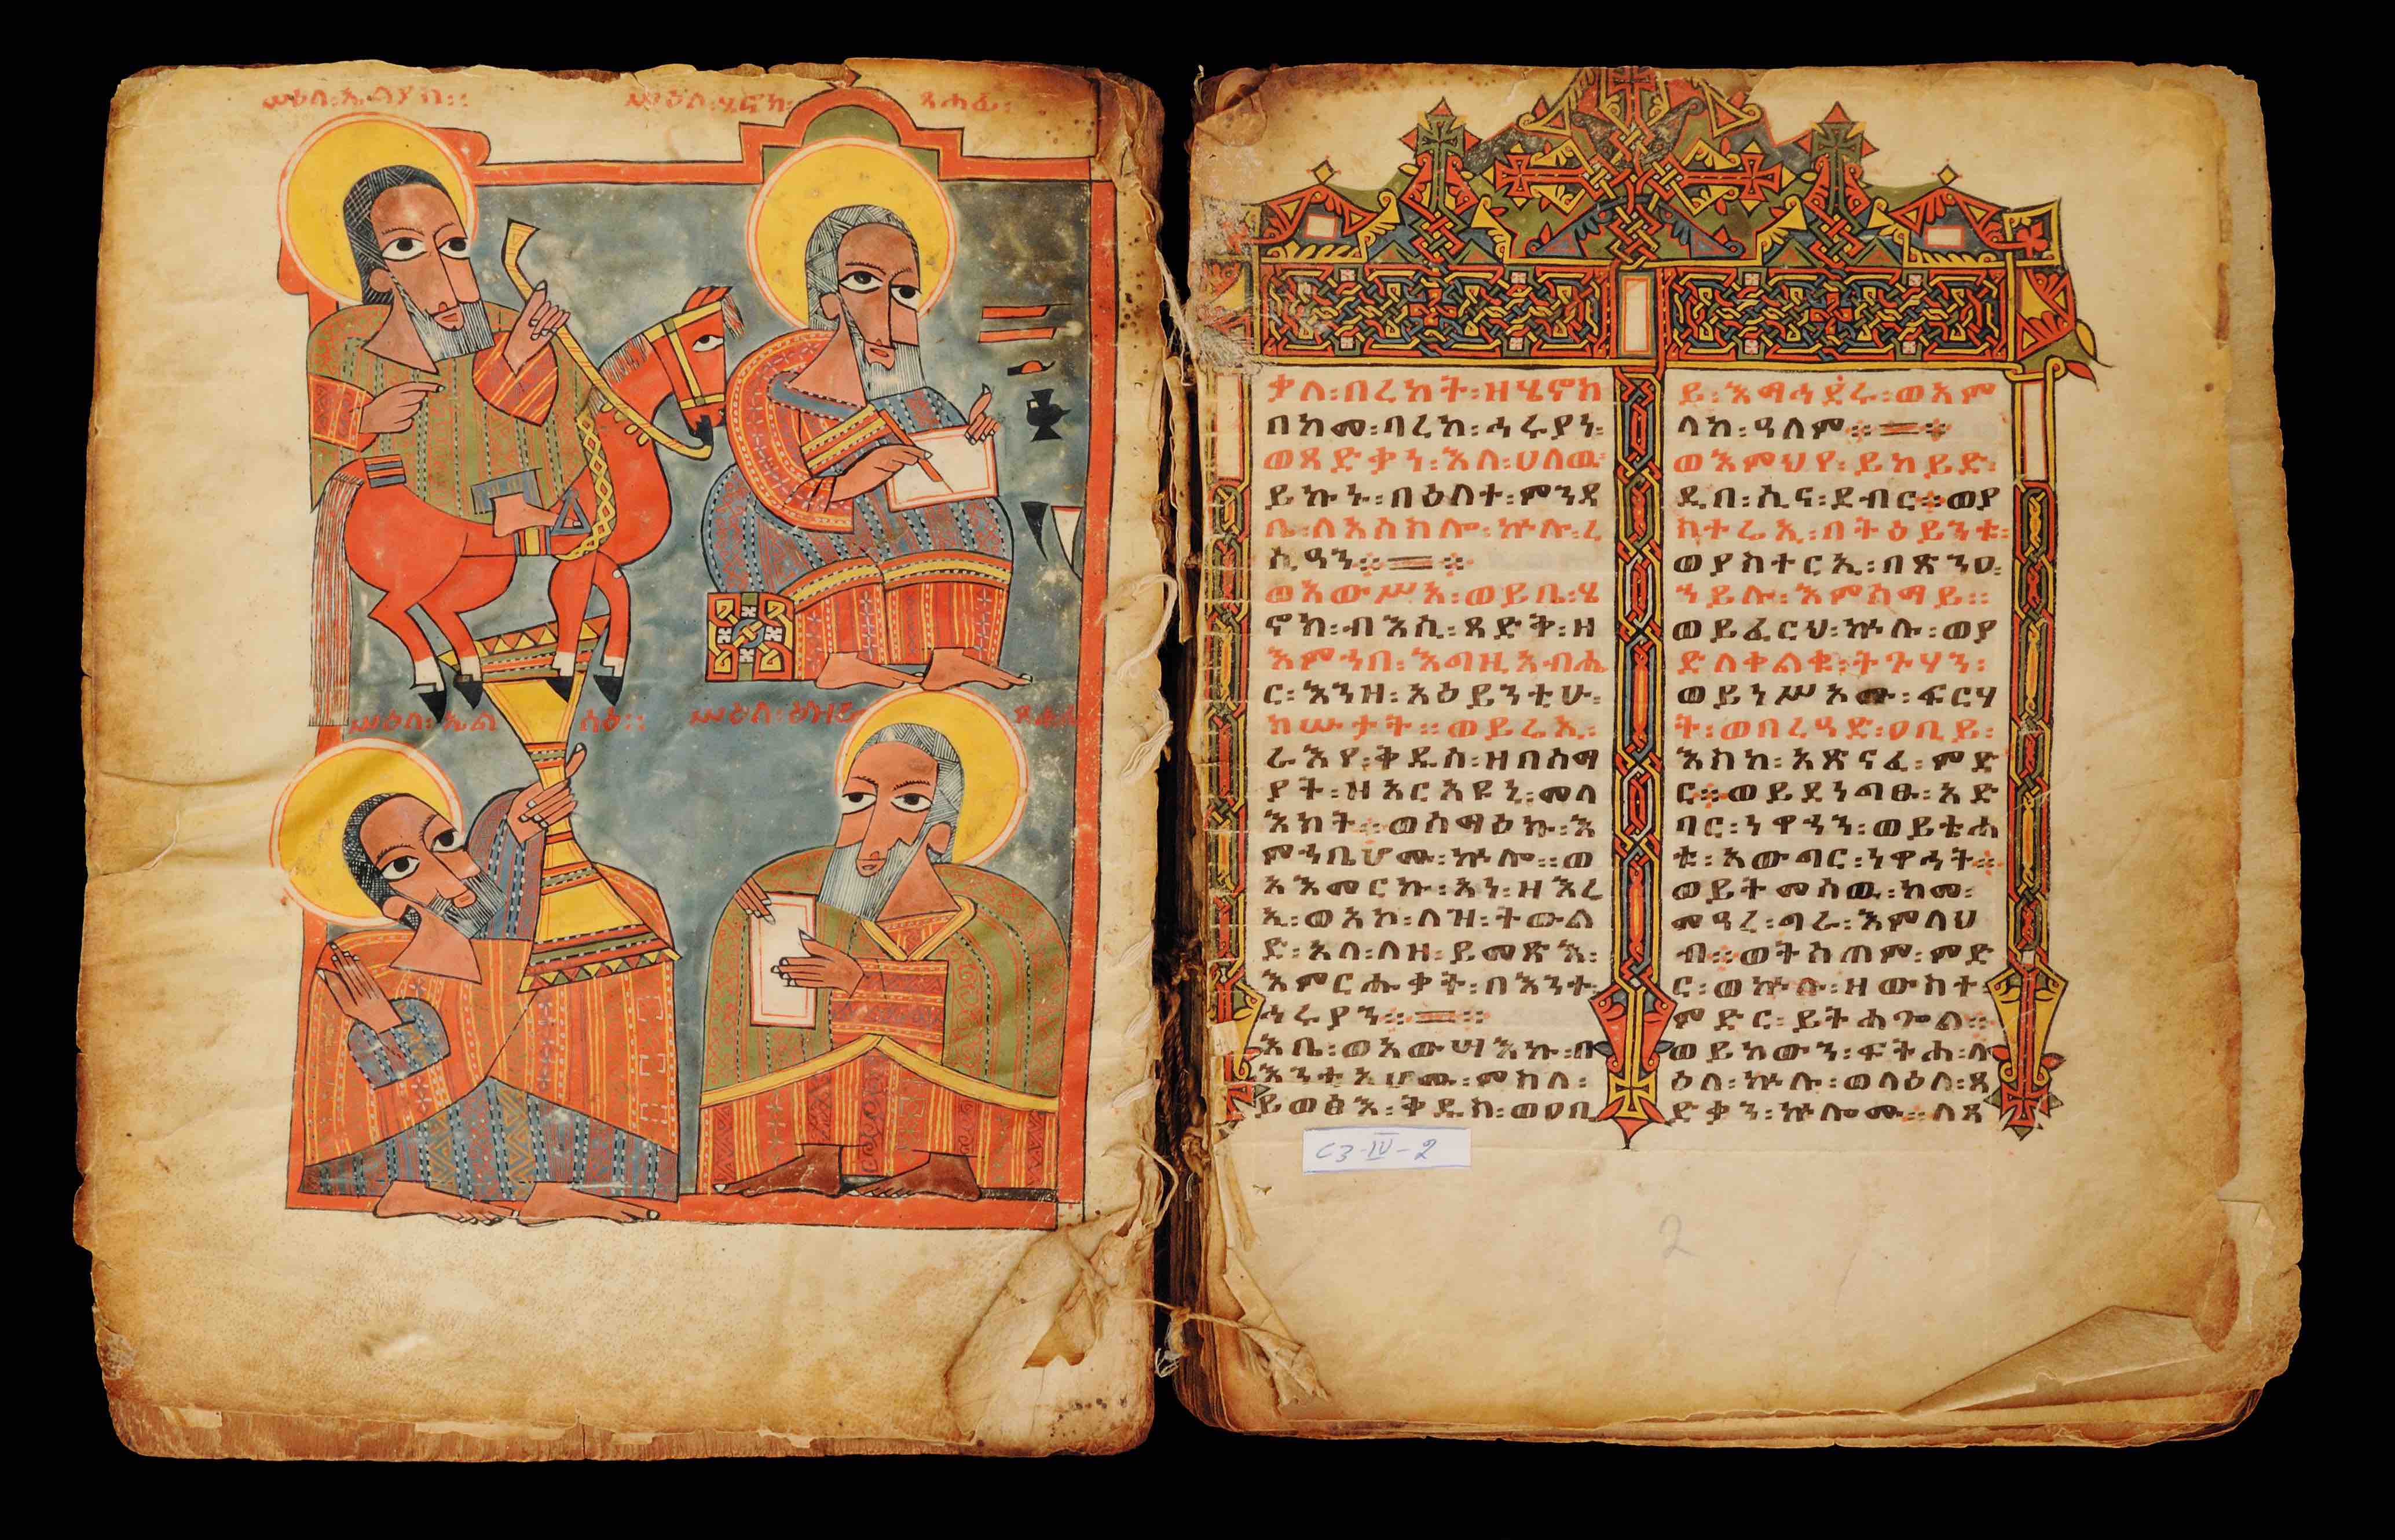 ሥዕለ፡ኤልያስ፡፡
ሥዕለ፡ሄኖክ፡ ጸሐፊ፡
ሥዕለ፡ኤል ሳዕ፡፡
ሥዕለ፡ዕዝራ
ቃለ፡በረከት፡ዘሄኖክ
በከመ፡ባረከ፡ኅሩያነ፡
ወጻድቃነ፡እለ፡ሀለዉ፡
ይኩኑ፡በዕለተ፡ምንዳ
ቤ፡ለአስስሎ፡ኵሉ፡ረ
ሲዓን፡፡
ወአውሥአ፡ወይቤ፡ሄ
ኖክ፡ብእሲ፡ጻድቅ፡ዘ
እምኀበ፡እግዚአብሔ
ር፡እንዘ፡አዕይንቲሁ፡
ከሡታት፡፡ወይሬኢ፡
ራእየ፡ቅዱስ፡ዘበሰማ
ያት፡ዘአርአዩኒ፡መላ
እክት፡፡ወሰማዕኩ፡እ
ምኀቤሆሙ፡ኵሎ፡፡ወ
አእመርኩ፡አነ፡ዘእሬ
ኢ፡ወአኮ፡ለዝ፡ትውል
ድ፡አላ፡ለዘ፡ይመጽእ፡
እምርሑቃት፡በእንተ፡
ኅሩያን፡፡
እቤ፡ወአውሣእኩ፡በ
እንቲአሆሙ፡ምስለ፡
ይወፅእ፡ቅዱስ፡ወዐቢ
ይ፡እማኅደሩ፡ወአም
ላከ፡ዓለም፡፡
ወእምህየ፡ይከይድ፡
ዲበ፡ሲና፡ደብር፡፡ወያ
ስተሬኢ፡በትዕይንቱ፡
ወያስተርኢ፡በጽንዐ፡
ኀይሉ፡እምሰማይ፡፡
ወይፈርህ፡ኵሉ፡ወያ
ድለቀልቁ፡ትጉሃን፡
ወይነሥአሙ፡ፍርሃ
ት፡ወበረዓድ፡ዐቢይ፡
እስከ፡አጽናፈ፡ምድ
ር፡፡ወይደነግፁ፡አድ
ባር፡ነዋኃን፡ወይቴሐ
ቱ፡አውግር፡ነዋኃት፡፡
ወይትመሰዉ፡ከመ፡
መዓረ፡ግራ፡እምላህ
ብ፡፡ወትሰጠም፡ምድ
ር፡ወኵሉ፡ዘውስተ፡
ምድር፡ይትሐጐል፡፡
ወይከውን፡ፍትሐ፡ላ
ዕለ፡ኵሉ፡ወላዕለ፡ጻ
ድቃን፡ኵሎሙ፡፡ለጻ
C3-IV-2
2